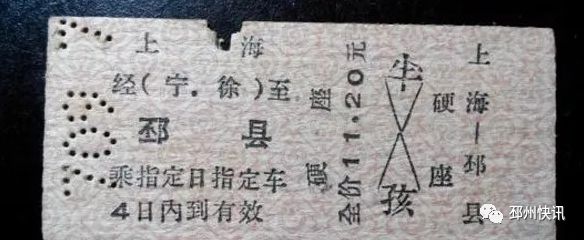 上海
经(宁.徐)至
邳县
乘指定日指定车
4日内到有效
硬座
全价11.20元
孩
硬座
上海—邳县
邳州快讯